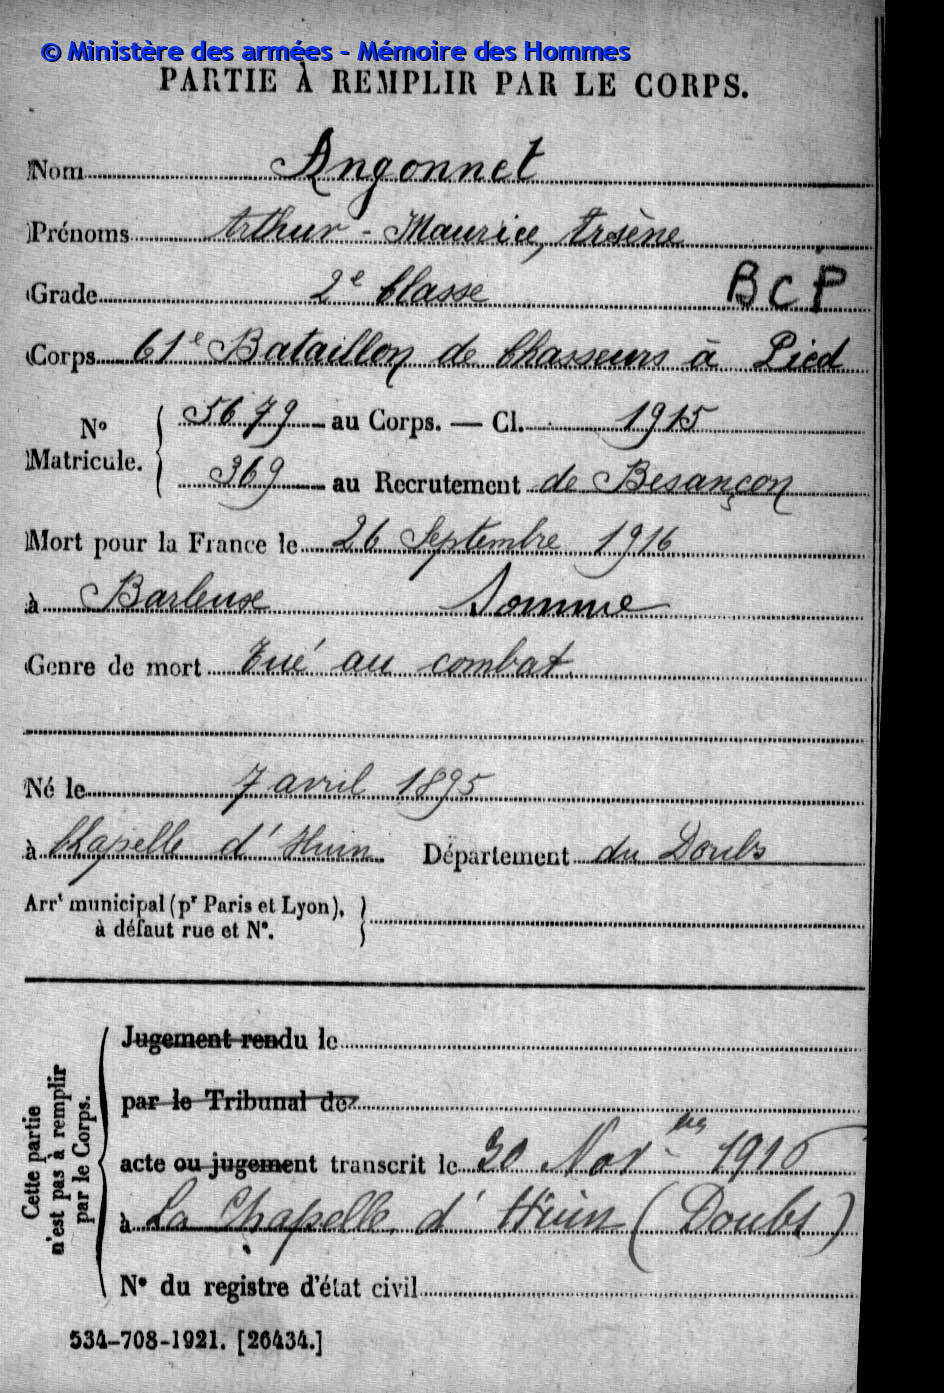 © Ministère des armées - Mémoire des Hommes
PARTIE À REMPLIR PAR LE CORPS.
Nom Angonnet
Prénoms Arthur - Maurice, Arsène
Grade 2e Classe BCP
Corps 61e Bataillon de Chasseurs à Pied
N° Matricule. { 5679 au Corps. — Cl. 1915
369 au Recrutement de Besançon
Mort pour la France le 26 Septembre 1916
à Barleuse Somme
Genre de mort Tué au combat
Né le 7 avril 1895
à Chapelle d'Huin Département du Doubs
Arrt municipal (pr Paris et Lyon),
à défaut rue et N°.
Cette partie
n'est pas à remplir
par le Corps.
Jugement rendu le
par le Tribunal de
acte ou jugement transcrit le 30 Novbre 1916
à La Chapelle d'Huin (Doubs)
N° du registre d'état civil
534-708-1921. [26434.]